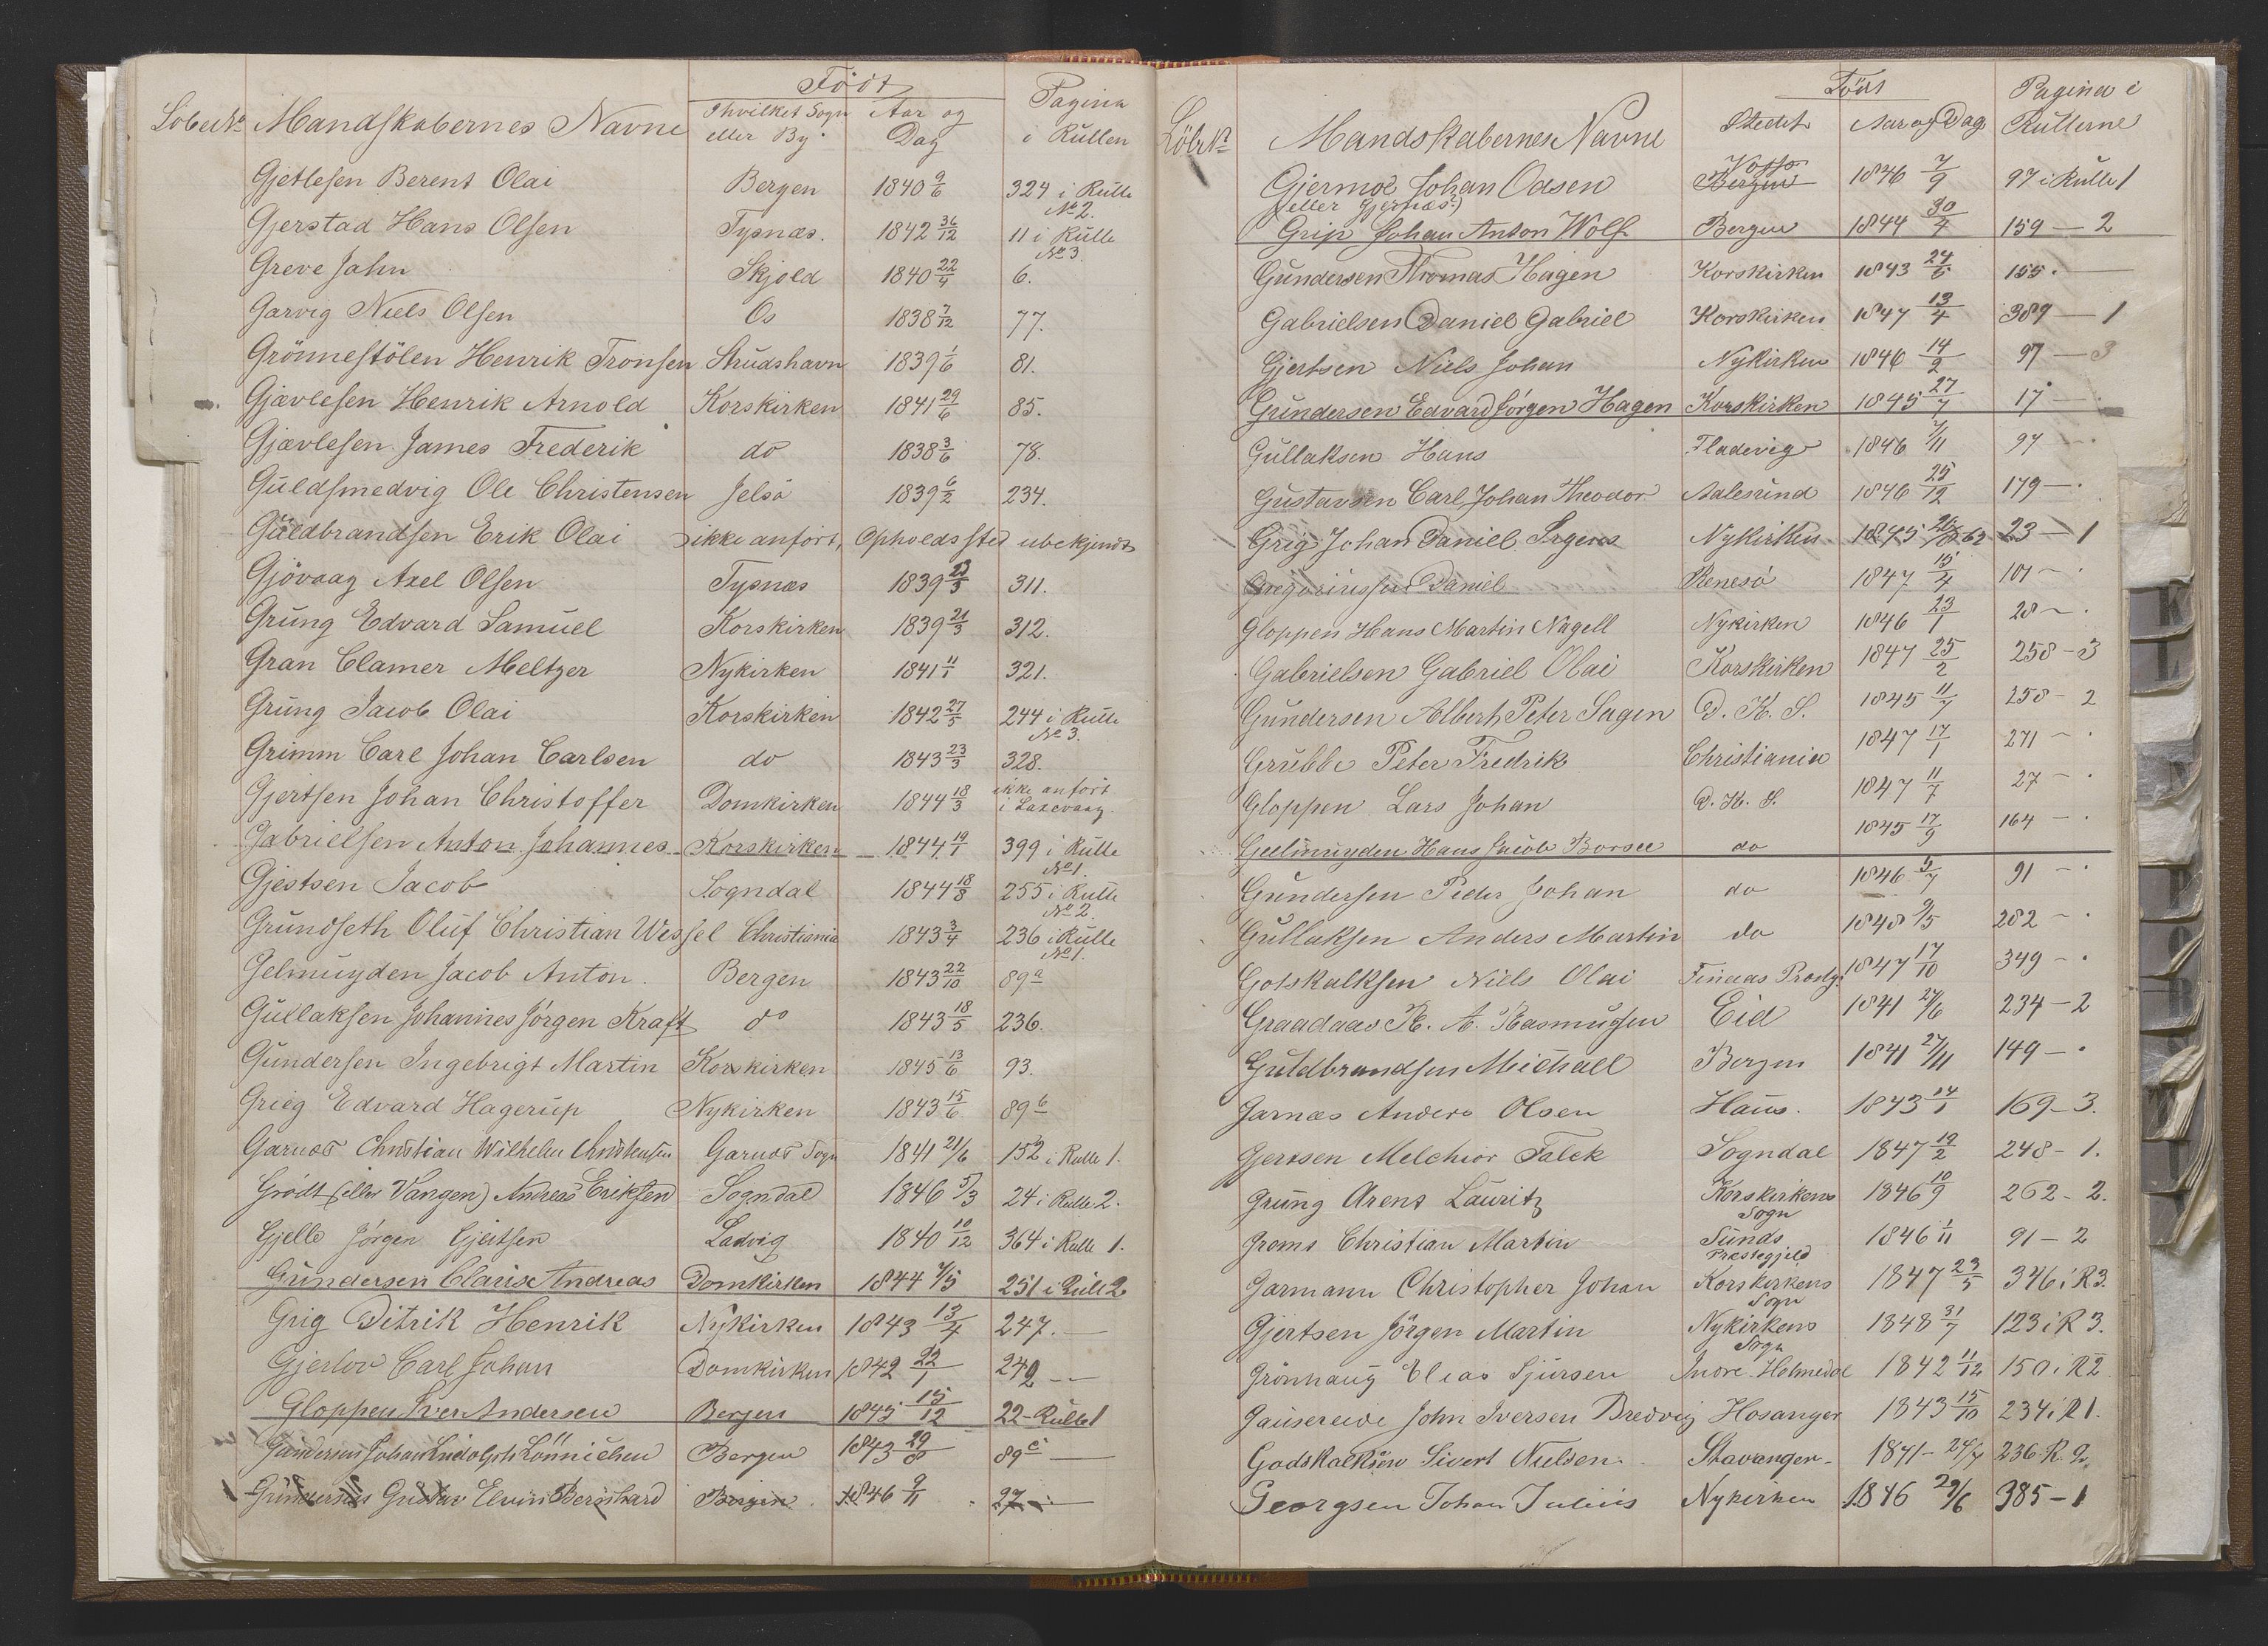 Födt
Löbe No Mandskabernes Navne Ihvilket Sogn eller By. Aar og Dag Pagina i Rullen
Gjetlesen Berent Olai Bergen 1840 9/6 324 i Rulle No 2.
Gjerstad Hans Olsen Tysnæs. 1842 36/12 11 i Rulle No 3.
Greve Jahn Skjold 1840 22/4 6.
Garvig Niels Olsen Os 1838 7/12 77.
Grönnestölen Henrik Tronsen Strudshavn 1839 1/6 81.
Gjævlesen Henrik Arnold Korskirken 1841 29/6 85.
Gjævlesen James Frederik do 1838 3/6 78.
Guldsmedvig Ole Christensen Jelsö 1839 6/2 234.
Guldbrandsen Erik Olai ikke anfört, Opholdssted ubekjendt
Gjövaag Axel Olsen Tysnæs 1839 /3 311.
Grung Edvard Samuel Korskirken 1839 21/3 312.
Gran Clamer Meltzer Nykirken 1841 11/1 321.
Grung Jacob Olai Korskirken 1842 27/5 244 i Rulle No 3.
Grimm Carl Johan Carlsen do 1843 23/3 328.
Gjertsen Johan Christoffer Domkirken 1844 18/3 ikke anfört i Laxevaag.
Gabrielsen Anton Johannes Korskirken 1844 19/1 399 i Rulle No 1.
Gjestsen Jacob Sogndal 1844 18/8 255 i Rulle No 2.
Grundseth Oluf Christian Wessel Christiania 1843 3/4 236 i Rulle No 1.
Gelmuyden Jacob Anton. Bergen 1843 22/10 89 a
Gullaksen Johannes Jörgen Kraft do 1843 18/5 236.
Gundersen Ingebrigt Martin Korskirken 1845 13/6 93.
Grieg Edvard Hagerup Nykirken 1843 15/6 89 b
Garnæs Christian Wilhelm Christensen Garnæs Sogn 1841 21/6 152 i Rulle 1.
Grödt (eller Vangen) Andreas Eriksen Sogndal 1846 5/3 24 i Rulle 2.
Gjelle Jörgen Gjertsen Ladvig 1840 10/12 364 i Rulle 1.
Gundersen Claris Andreas Domkirken 1844 4/5 251 i Rull 2
Grig Ditrik Henrik Nykirken 1843 13/4 247. —
Gjerlov Carl Johan Domkirken 1842 22/1 249 —
Gloppen Iver Andersen Bergen 1845 15/12 22 - Rulle 1
Gundersen Johan Ludolph Lönnichen Bergen 1843 29/8 89 c —
Gundersen Gustav Elvin Bernhard Bergen. 1846 9/11 27 —
Födt
Löbe No Mandskabernes Navne Stedet Aar og Dag Pagina i Rullerne
Gjermoe Johan Odsen Bergen Voss 1846 7/9 97 i Rulle 1
(eller Gjernæs?)
Grip Johan Anton Wolf Bergen 1844 30/4 159 — 2
Gundersen Thomas Hagen Korskirken 1843 24/6 155. —
Gabrielsen Daniel Gabriel Korskirken 1847 13/4 389 — 1
Gjertsen Niels Johan Nykirken 1846 14/2 97 — 3
Gundersen Edvard Jörgen Hagen Korskirken 1845 27/7 17 — .
Gullaksen Hans Fladevig 1846 7/11 97 — .
Gustavsen Carl Johan Theodor Aalesund 1846 25/12 179 — .
Grig Johan Daniel Irgens Nykirken 1845 23 — 1
Gregoriussen Daniel Renesö 1847 15/4 101 — .
Gloppen Hans Martin Nagell Nykirken 1846 23/1 28 — .
Gabrielsen Gabriel Olai Korskirken 1847 25/2 258 - 3
Gundersen Albert Peter Sagen D. K. S. 1845 11/7 258 - 2
Grubbe Peter Fredrik Christiania 1847 17/1 271 — .
Gloppen Lars Johan D. K. S. 1847 11/7 27 — .
Geelmuyden Hans Jacob Borse do 1845 17/9 164 — .
Gundersen Peder Johan do 1846 5/7 91 — .
Gullaksen Anders Martin do 1848 9/5 282 — .
Gotskalksen Niels Olai Finaas Prestg. 1847 17/10 349 — .
Graadaas R. A. Rasmusen Eid 1841 27/6 234 — 2
Guldbrandsen Michael Bergen 1841 27/11 149 — .
Garnæs Anders Olsen Haus. 1843 14/1 169 - 3.
Gjertsen Melchior Falck Sogndal 1847 19/2 248 - 1.
Grung Arent Lauritz Korskirkens Sogn 1846 10/9 262 - 2.
Groms Christian Martin Sunds Præstegjeld 1846 1/11 91 - 2
Garmann Christopher Johan Korskirkens Sogn 1847 23/5 346 i R 3.
Gjertsen Jörgen Martin Nykirkens Sogn 1848 31/7 123 i R 3.
Grönhaug Elias Sjursen Indre Holmedal 1842 11/12 150 i R 2
Gausereide John Iversen Bredvig Hosanger 1843 15/10 234 i R 1.
Godskalksen Sivert Nielsen. Stavanger - 1841 - 24/7 236 R. 2.
Georgsen Johan Julius Nykirken 1846 29/6 385 - 1
K
L